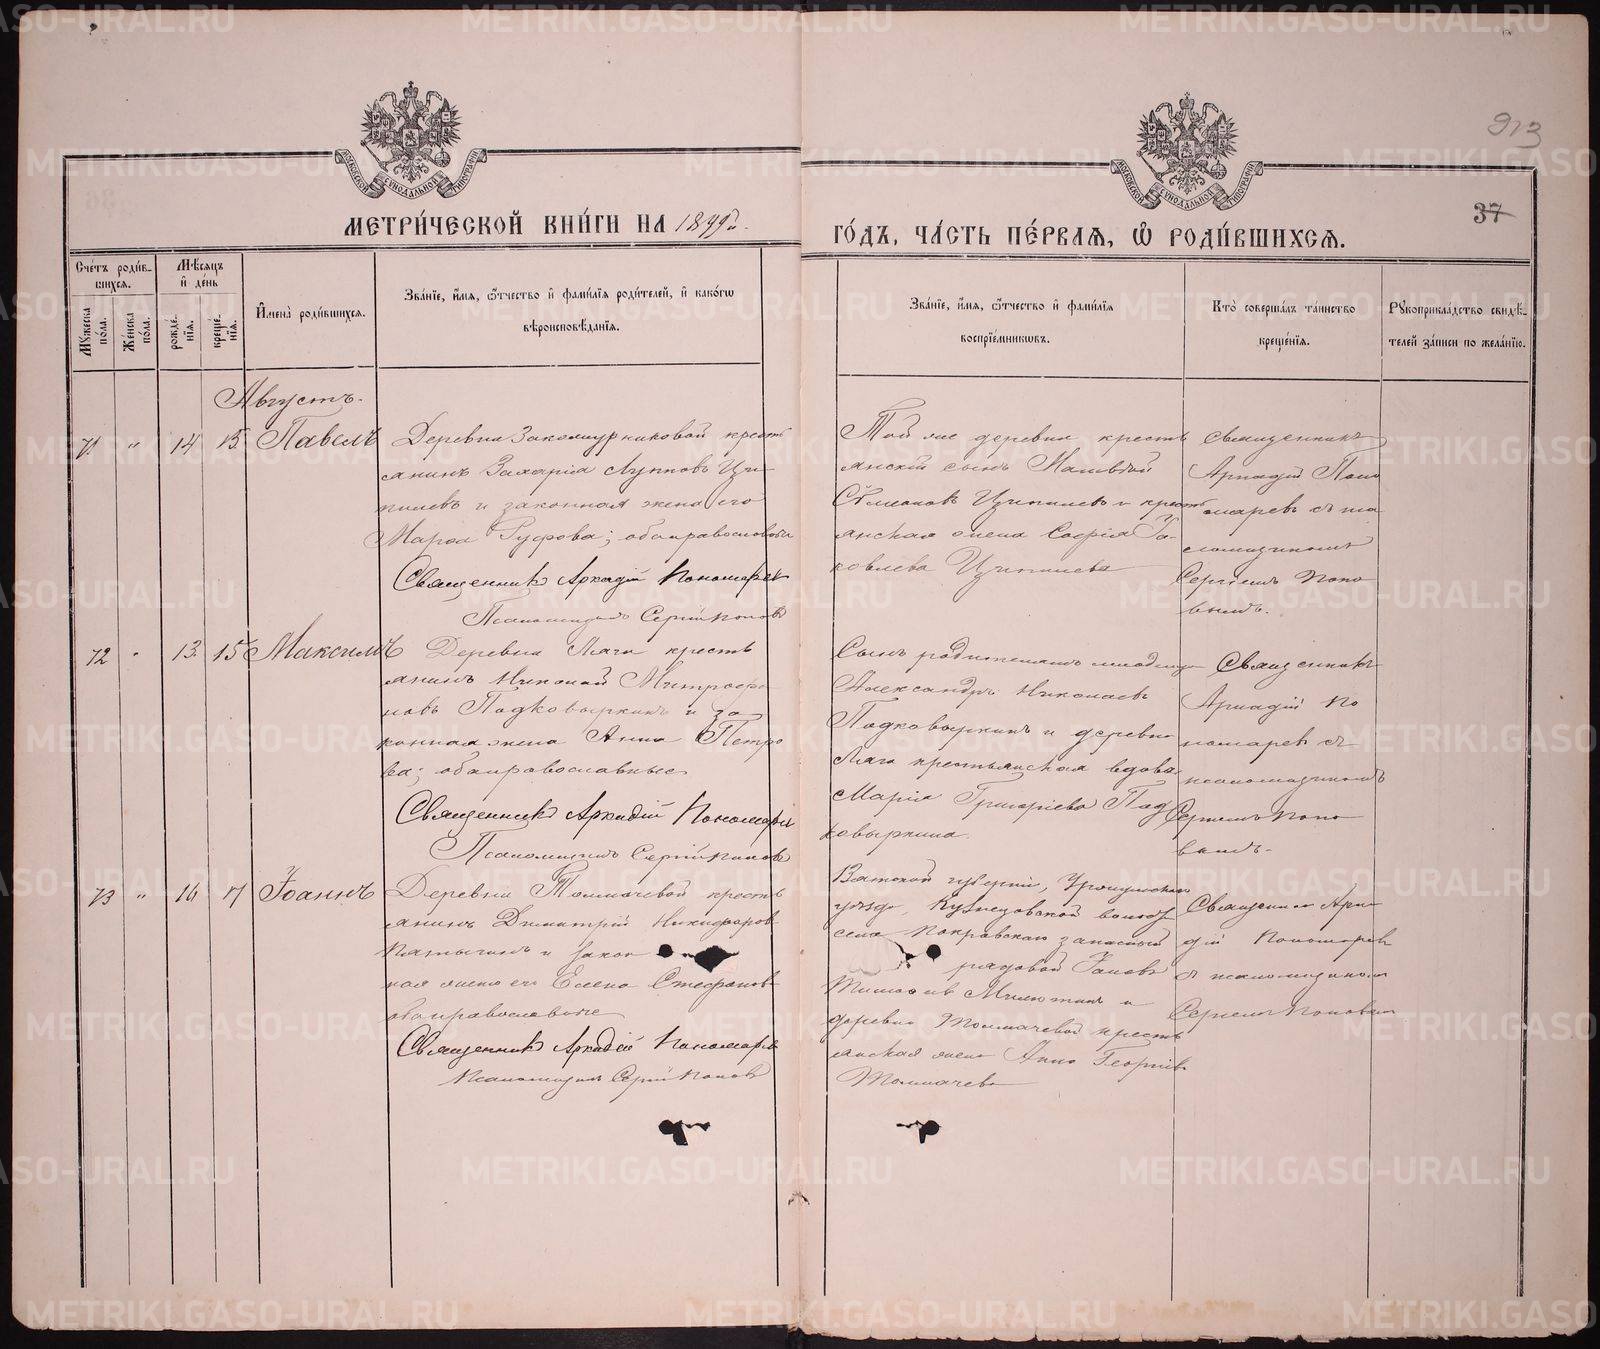 913
37
МЕТРИЧЕСКОЙ КНИГИ НА 1899 г.
ГОДЪ, ЧАСТЬ ПЕРВАЯ, Ѡ РОДИВШИХСЯ.
Счетъ родив-
шихся.
Мужеска пола.
Женска пола.
Мѣсяцъ и день
рожде-
нїя.
креще-
нїя.
Имена родившихся.
Званїе, имя, ѿчество и фамилїя родителей, и какогѡ
вѣроисповѣданїя.
Званїе, имя, ѿчество и фамилїя
воспрїемникѡвъ.
Кто совершалъ таинство
крещенїя.
Рукоприкладство свидѣ-
телей записи по желанїю.
Августъ.
71 " 14 15 Павелъ
Деревни крестъ
янинъ Захарія
и законная жена его
Руфова; обаправославны
Священникъ Аркадій Пономаревъ
Псаломщикъ Сергій Поповъ
Той же деревни кресть
янскій сынъ
и кресть
янская жена Софія Я-
ковлева
Священникъ
Аркадій Поно
маревъ съ пса
ломщикомъ
Сергіемъ Попо
вымъ.
72 " 13 15 Максимъ
Деревни кресть
янинъ Николай Митрофа
новъ Подковыркинъ и за
конная жена Анна Петро
ва; обаправославные
Священникъ Аркадій Пономаревъ
Псаломщикъ Сергій Поповъ
Сынъ родителямъ младенца
Александръ Николаевъ
Подковыркинъ и деревни
крестьянская вдова
Марія Григоріева Под
ковыркина.
Священникъ
Аркадій По
номаревъ съ
псаломщикомъ
Сергіемъ Попо
вымъ.
73 " 16 17 Іоаннъ
Деревни Толмачевой кресть
янинъ Димитрій Никифоров
и закон
ная жена его Елена Стефанова
обаправославные
Священникъ Аркадій Пономарев
Псаломщикъ Сергій Поповъ
Вятской губерніи, Уржумскаго
уѣзда, Кузнецовской волости
села Покровскаго запасный
рядовой Іаковъ
Милютинъ и
деревни Толмачевой кресть
янская жена Анна Георгіев
Толмачева
Священникъ Арка
дій Пономарев
съ псаломщикомъ
Сергіемъ Поповым
METRIKI.GASO-URAL.RU